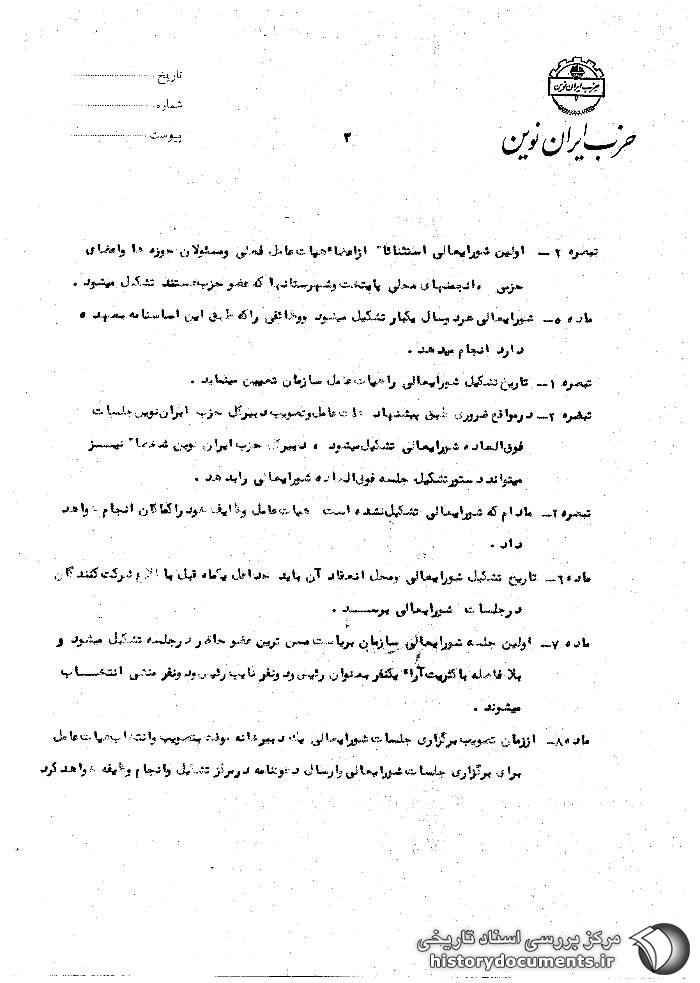 حزب ایران نوین
حزب ایران نوین
تاریخ
شماره
پیوست
۳
تبصره ۲ـ اولین شورایعالی استثنائا" ازاعضاء هیات عامل فعلی ومسئولان حوزه ها واعضای
حزبی انجمنهای محلی پایتخت وشهرستانها که عضو حزب هستند تشکیل میشود .
ماده ۵ـ شورایعالی هر دوسال یکبار تشکیل میشود ووظائفی راکه طبق این اساسنامه بعهده
دارد انجام میدهد .
تبصره ۱ـ تاریخ تشکیل شورایعالی را هیات عامل سازمان تعیین مینماید .
تبصره ۲ـ درمواقع ضروری طبق پیشنهاد هیات عامل وتصویب دبیرکل حزب ایران نوین جلسات
فوق العاده شورایعالی تشکیل میشود دبیرکل حزب ایران نوین شخصا" نیـــز
میتواند دستورتشکیل جلسه فوق العاده شورایعالی رابدهد .
تبصره ۳ـ مادام که شورایعالی تشکیل نشده است هیات عامل وظایف خود راکماکان انجام خواهد
داد .
ماده ۶ـ تاریخ تشکیل شورایعالی ومحل انعقاد آن باید حداقل یکماه قبل با اطلاع شرکت کنندگان
درجلسات شورایعالی برســـد .
ماده ۷ـ اولین جلسه شورایعالی سازمان بریاست مسن ترین عضو حاضر درجلسه تشکیل میشود و
بلا فاصله با کثریت آراء یکنفر بعنوان رئیس ودونفر نایب رئیس ودونفر منشی انتخـــاب
میشوند .
ماده ۸ـ اززمان تصویب برگزاری جلسات شورایعالی یک دبیرخانه موقت بتصویب وانتخاب هیات عامل
برای برگزاری جلسات شورایعالی وارسال دعوتنامه درمرکز تشکیل وانجام وظیفه خواهد کرد
مرکز بررسی اسناد تاریخی
historydocuments.ir